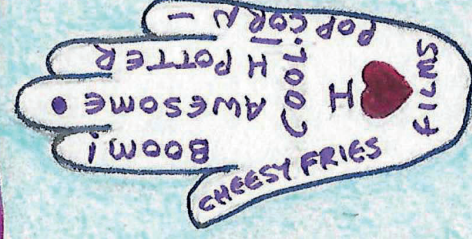 POP CORN –
H POTTER
AWESOME •
BOOM!
COOL!
I ♥ FILMS
CHEESY FRIES